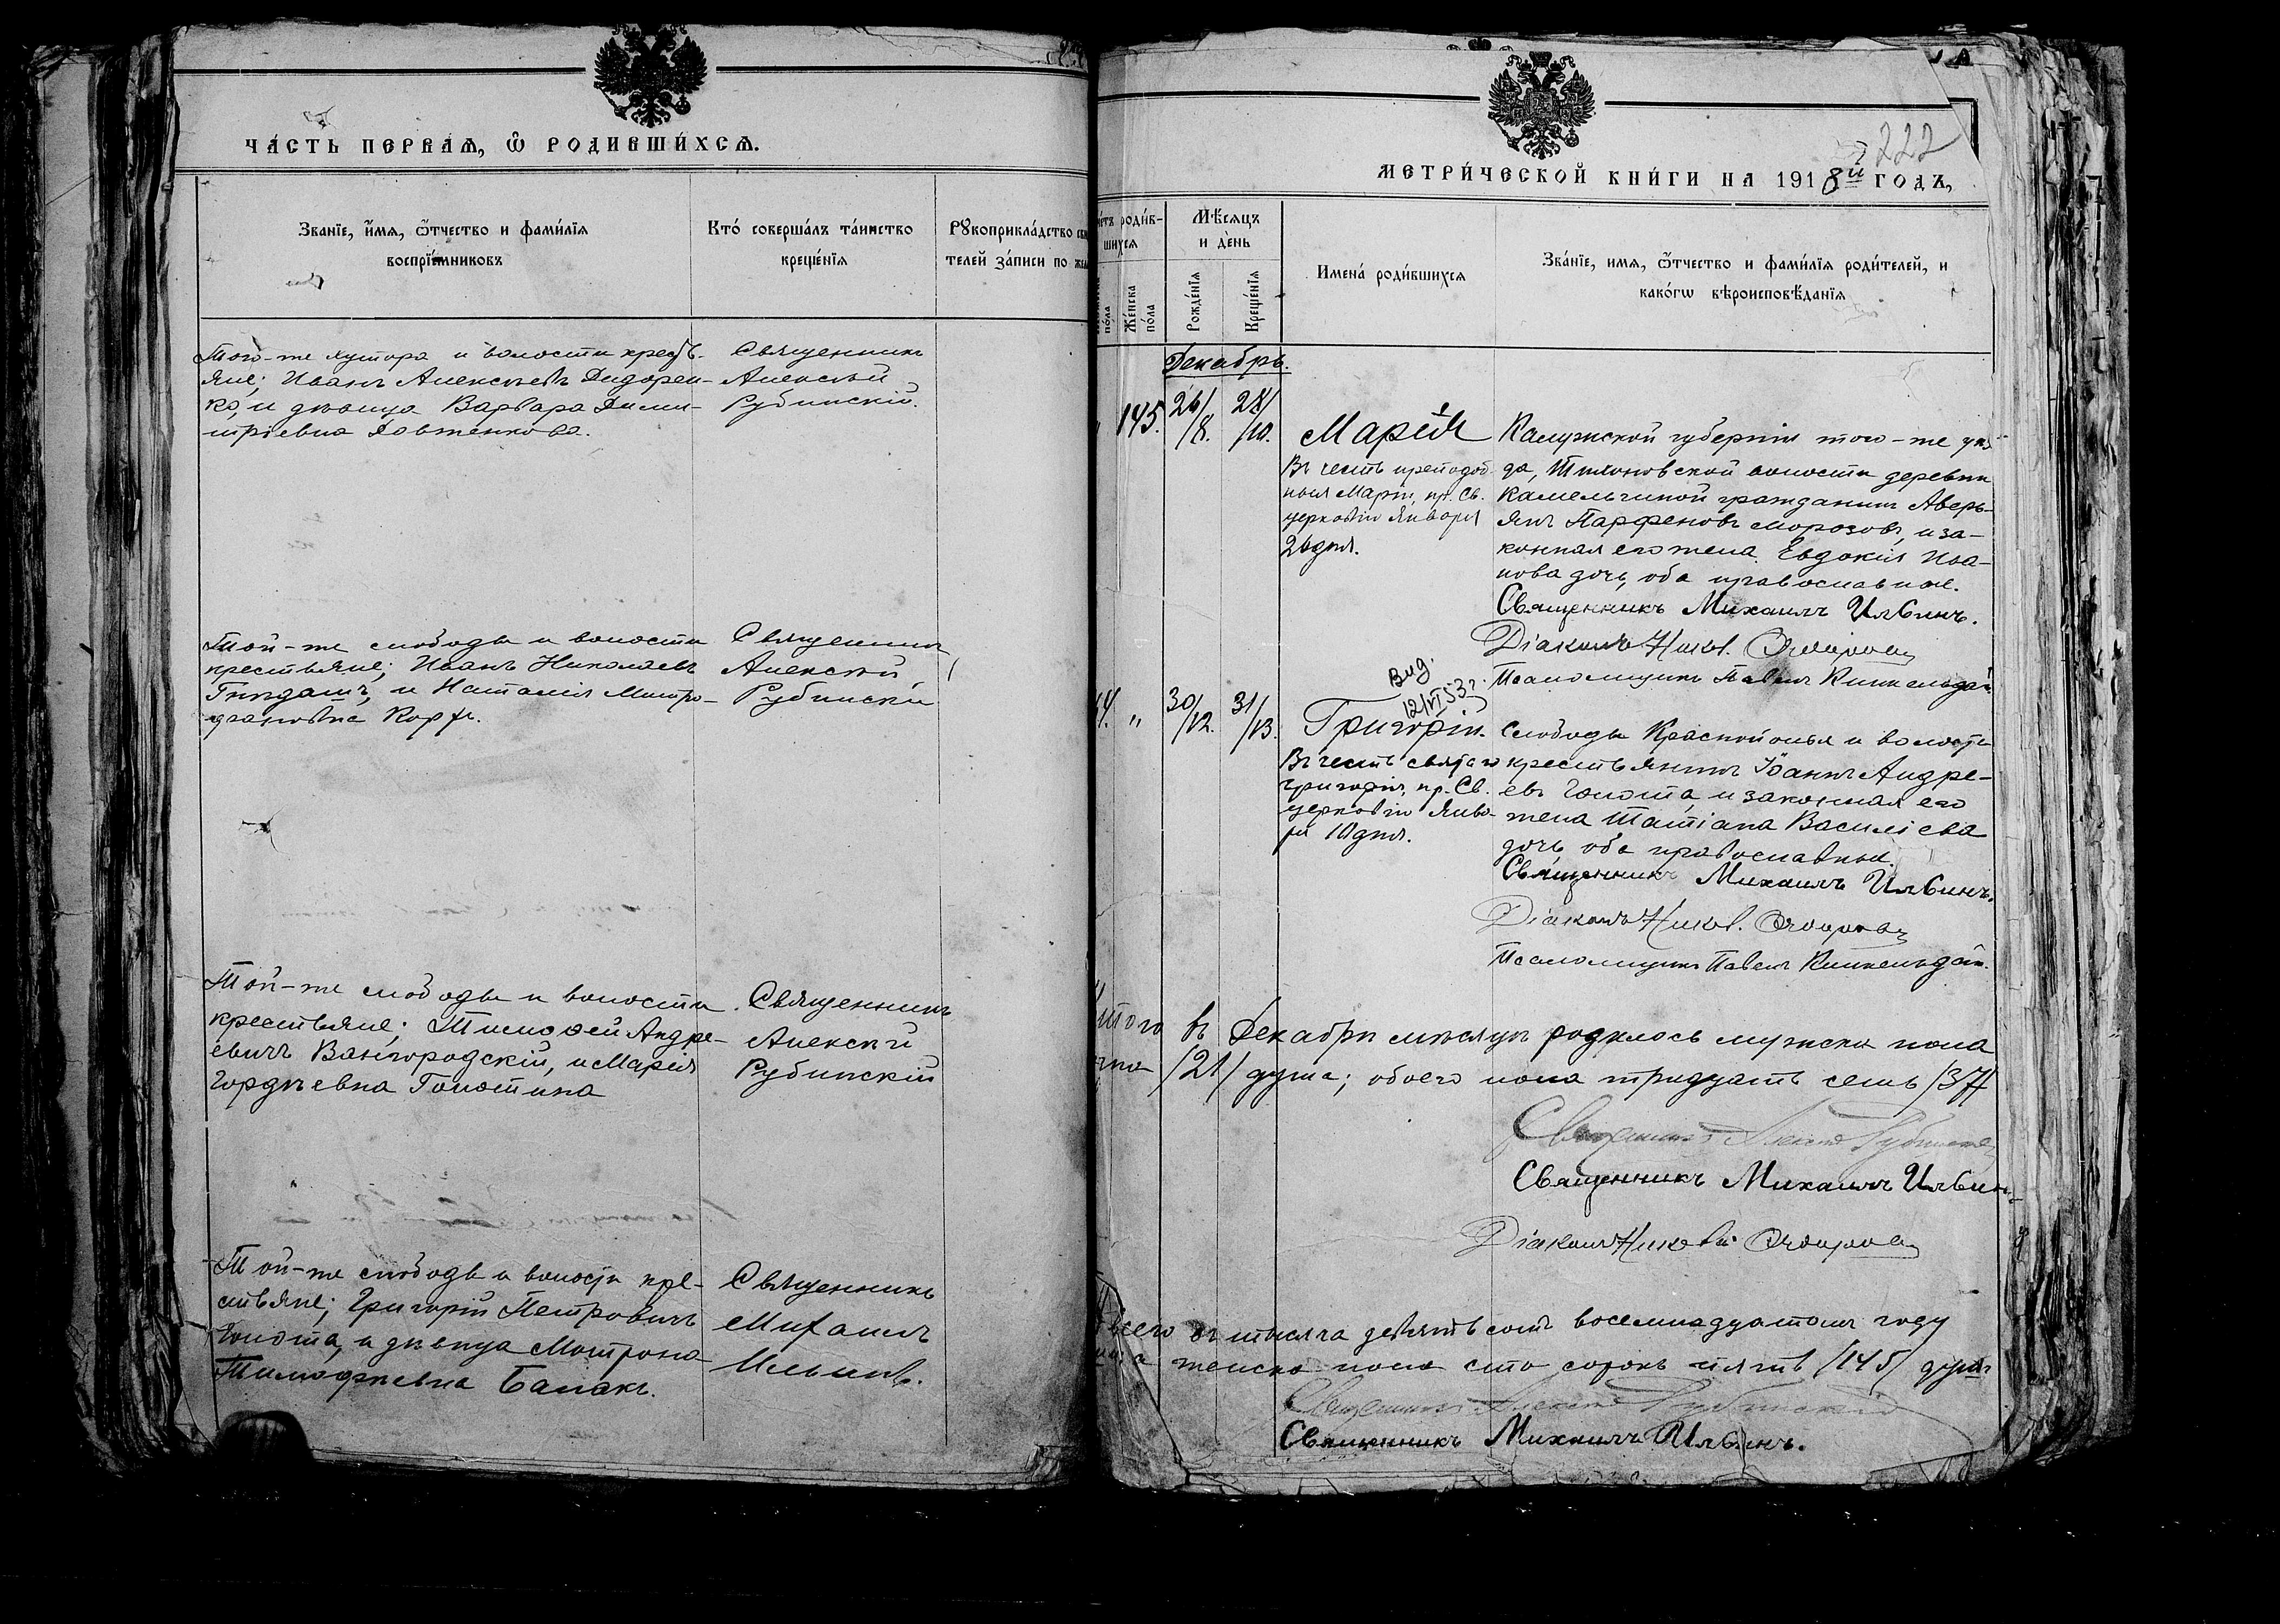 ЧА́СТЬ ПЕРВАЯ, Ѿ РОДИВШИ́ХСѦ.
Зва́нїе, и́мѧ, ѻ҆́тчество и фами́лїѧ
воспрїе́мниковъ
Кто́ соверша́лъ та́инство
креще́нїѧ
Рꙋкоприкла́дство
телей за́писи по
Того-же хутора и волости кресть-
яне; Иванъ Алексѣевъ Дидорен-
ко, и дѣвица Варвара Дими-
тріевна Довженкова.
Священникъ
Алексѣй
Рубинскій.
Той-же слободы и волости
крестьяне; Иванъ Николаевъ
и Наталія Митро-
фановна Корж.
Священникъ
Алексѣй
Рубинскій
Той-же слободы и волости
крестьяне; Тимофей Андре-
евичъ Вангородскій, и Марія
Гордѣевна Голотина
Священникъ
Алексѣй
Рубинскій
Той-же слободы и волости кре-
стьяне; Григорій Петровичъ
Голота, и дѣвица Матрона
Тимофеевна Балакъ.
Священникъ
Михаилъ
Ильинъ.
222
МЕТРИ́ЧЕСКОЙ КНИ́ГИ НА 1918й ГОДЪ,
роди́в-
шихсѧ
Же́нска
по́ла
Мѣ́сѧцъ
и де́нь
Рожде́нїѧ
Креще́нїѧ
Имена́ роди́вшихсѧ
Зва́нїе, имѧ, ѻ҆́тчество и фами́лїѧ роди́телей, и
како́гѡ вѣроисповѣ́данїѧ
Декабрь.
145. 26/8. 28/10.
Марія
Въ честь преподоб-
ныя Маріи, пр. Св.
церковію Января
26 дня.
Калужской губерніи того-же уѣз-
да, Тихоновской волости деревни
Камельгиной гражданинъ Аверь-
янъ Парфеновъ Морозовъ, и за-
конная его жена Евдокія Ива-
нова дочь, оба православные.
Священникъ Михаилъ Ильинъ.
Діаконъ Никол.
Псаломщикъ Павелъ
Выд.
12/VI 53 г.
" 30/12. 31/13.
Григорій.
Въ честь святаго
Григорія, пр. Св.
церковію Янва-
ря 10 дня.
Слободы Краснополья и волости
крестьянинъ Іоаннъ Андре-
евъ Голота, и законная его
жена Татіана Василіева
дочь, оба православные.
Священникъ Михаилъ Ильинъ.
Діаконъ Никол.
Псаломщикъ Павелъ
Итого въ Декабрѣ мѣсяцѣ родилось мужска пола
/21/ душа; обоего пола тридцать семь /37/
Священникъ Алексѣй Рубинскій
Священникъ Михаилъ Ильинъ
Діаконъ Николай
Всего въ тысяча девятьсотъ восемнадцатомъ году
женска пола сто сорокъ пять /145/ душъ
Священникъ Алексѣй Рубинскій
Священникъ Михаилъ Ильинъ.